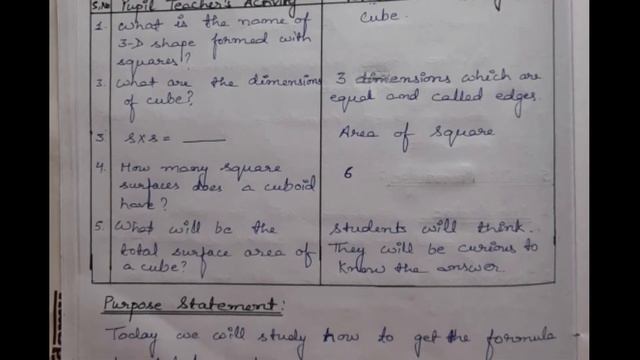 S.No Pupil Teacher's Activity
1. What is the name of cube.
3-D shape formed with
squares?
3. What are the dimensions 3 dimensions which are
of cube? equal and called edges.
3. s×s = ____ Area of square
4. How many square 6
surfaces does a cuboid
have?
5. What will be the students will think.
total surface area of They will be curious to
a cube? know the answer.
Purpose Statement:
Today we will study how to get the formula